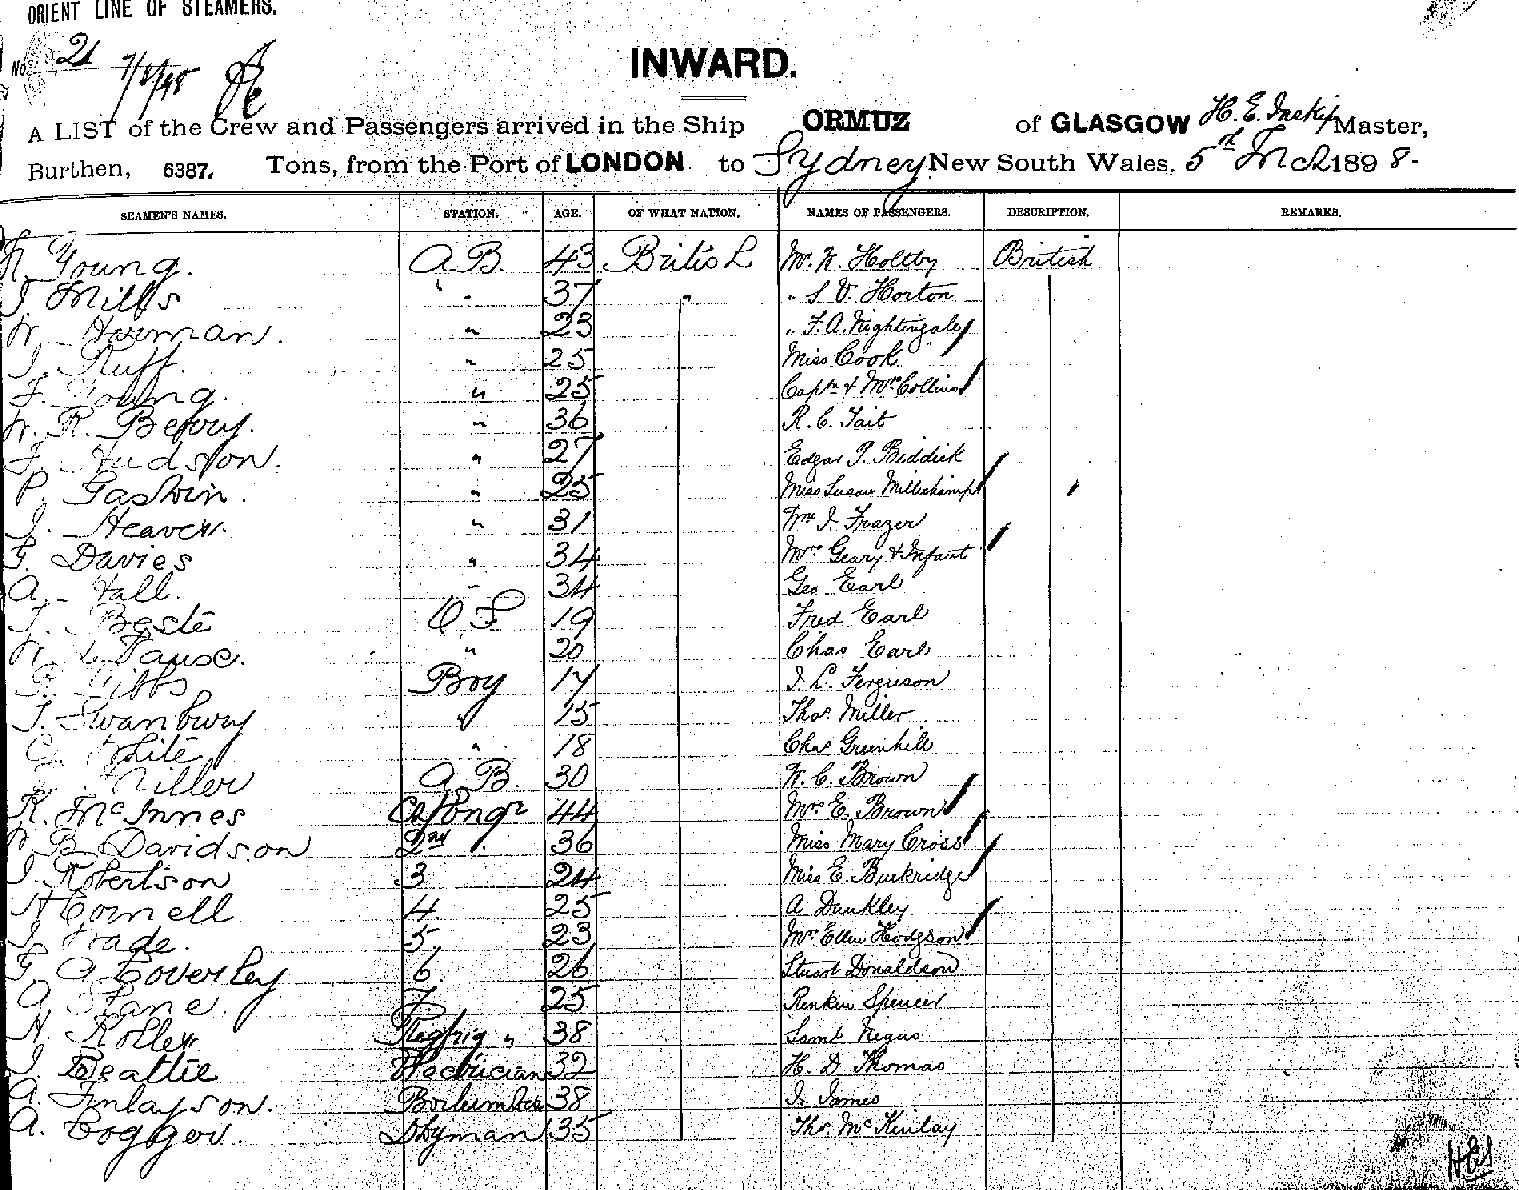 ORIENT LINE OF STEAMERS.
No. 21 7/3/98
INWARD.
A LIST of the Crew and Passengers arrived in the Ship ORMUZ of GLASGOW H. E. Inskip Master,
Burthen, 6387. Tons, from the Port of LONDON to Sydney New South Wales. 5th Mch 1898-
SEAMEN'S NAMES. STATION. AGE. OF WHAT NATION. NAMES OF PASSENGERS. DESCRIPTION. REMARKS.
Young. A.B. 43 British Mr. W. Holtby British
Mills " 37 " " S. V. Horton
Horman. " 23 " F. A. Nightingale
Ruff. " 25 Miss Cook
F. Young. " 25 Captn & Mrs Collins
W. R. Berry. " 36 R. C. Tait
F. Hudson. " 27 Edgar P. Biddick
P. Gaskin. " 25 Miss Susan Millichamp
J. Heaven. " 31 Wm J. Frazer
G. Davies " 34 Mrs Geary & Infant
A. Hall. " 34 Geo Earl
Beste O S 19 Fred Earl
" 20 Chas Earl
Gibbs Boy 17 J. L. Ferguson
Swanbury " 15 Thos Miller
White " 18 Chas Greenhill
Miller A.B. 30 W. C. Brown
R. McInnes 44 Mrs E. Brown
B. Davidson 2nd 36 Miss Mary Cross
J. Robertson 3 24 Miss E. Burkridge
H Cornell 4 25 A Dunkley
5 23 Mrs Ellen Hodgson
G A Coverley 6 26 Stuart Donaldson
A. Lane. 7 25 Spencer
H. Kolley Refrig " 38 Saml Negus
J. Beattie Electrician 32 H. D Thomas
A. Finlayson. 38 J. James
A. Cogger. 35 Thos. McKinlay